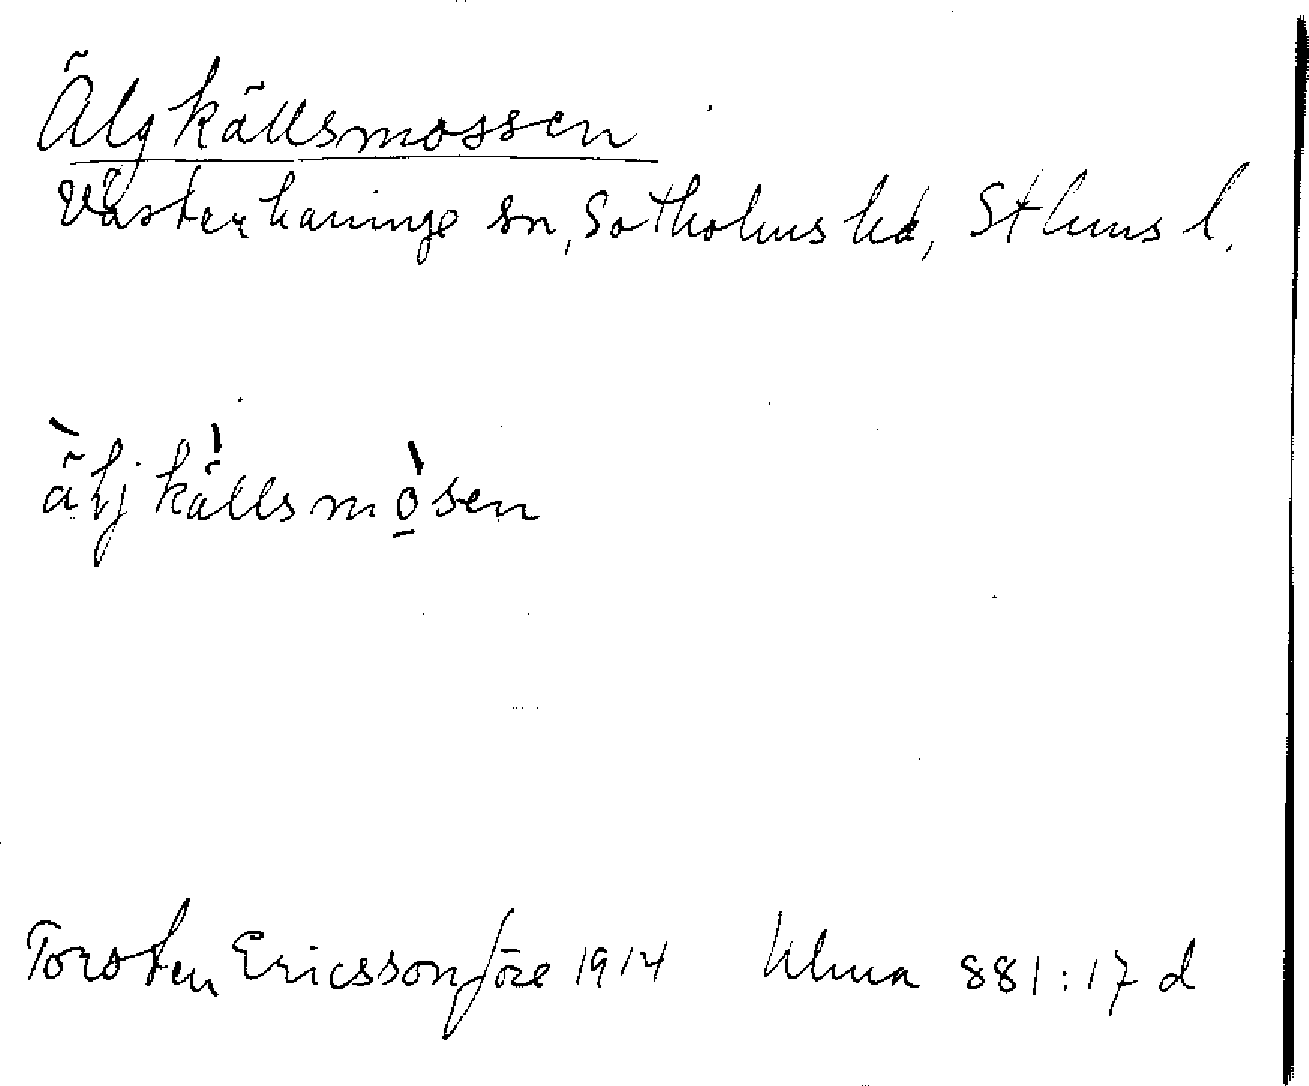 Älgkällsmossen
Västerhaninge sn, Sotholms hd, Sthms l.
äljkällsmo̱sen
Torsten Ericsson före 1914 Ulma 881:17 d